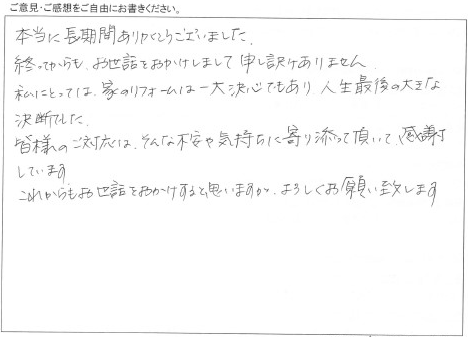 ご意見・ご感想をご自由にお書きください。
本当に長期間ありがとうございました。
終ってからも、お世話をおかけしまして申し訳ありません。
私にとっては、家のリフォームは一大決心でもあり、人生最後の大きな
決断でした。
皆様のご対応は、そんな不安や気持ちに寄り添って頂いて、感謝
しています。
これからもお世話をおかけすると思いますが、よろしくお願い致します